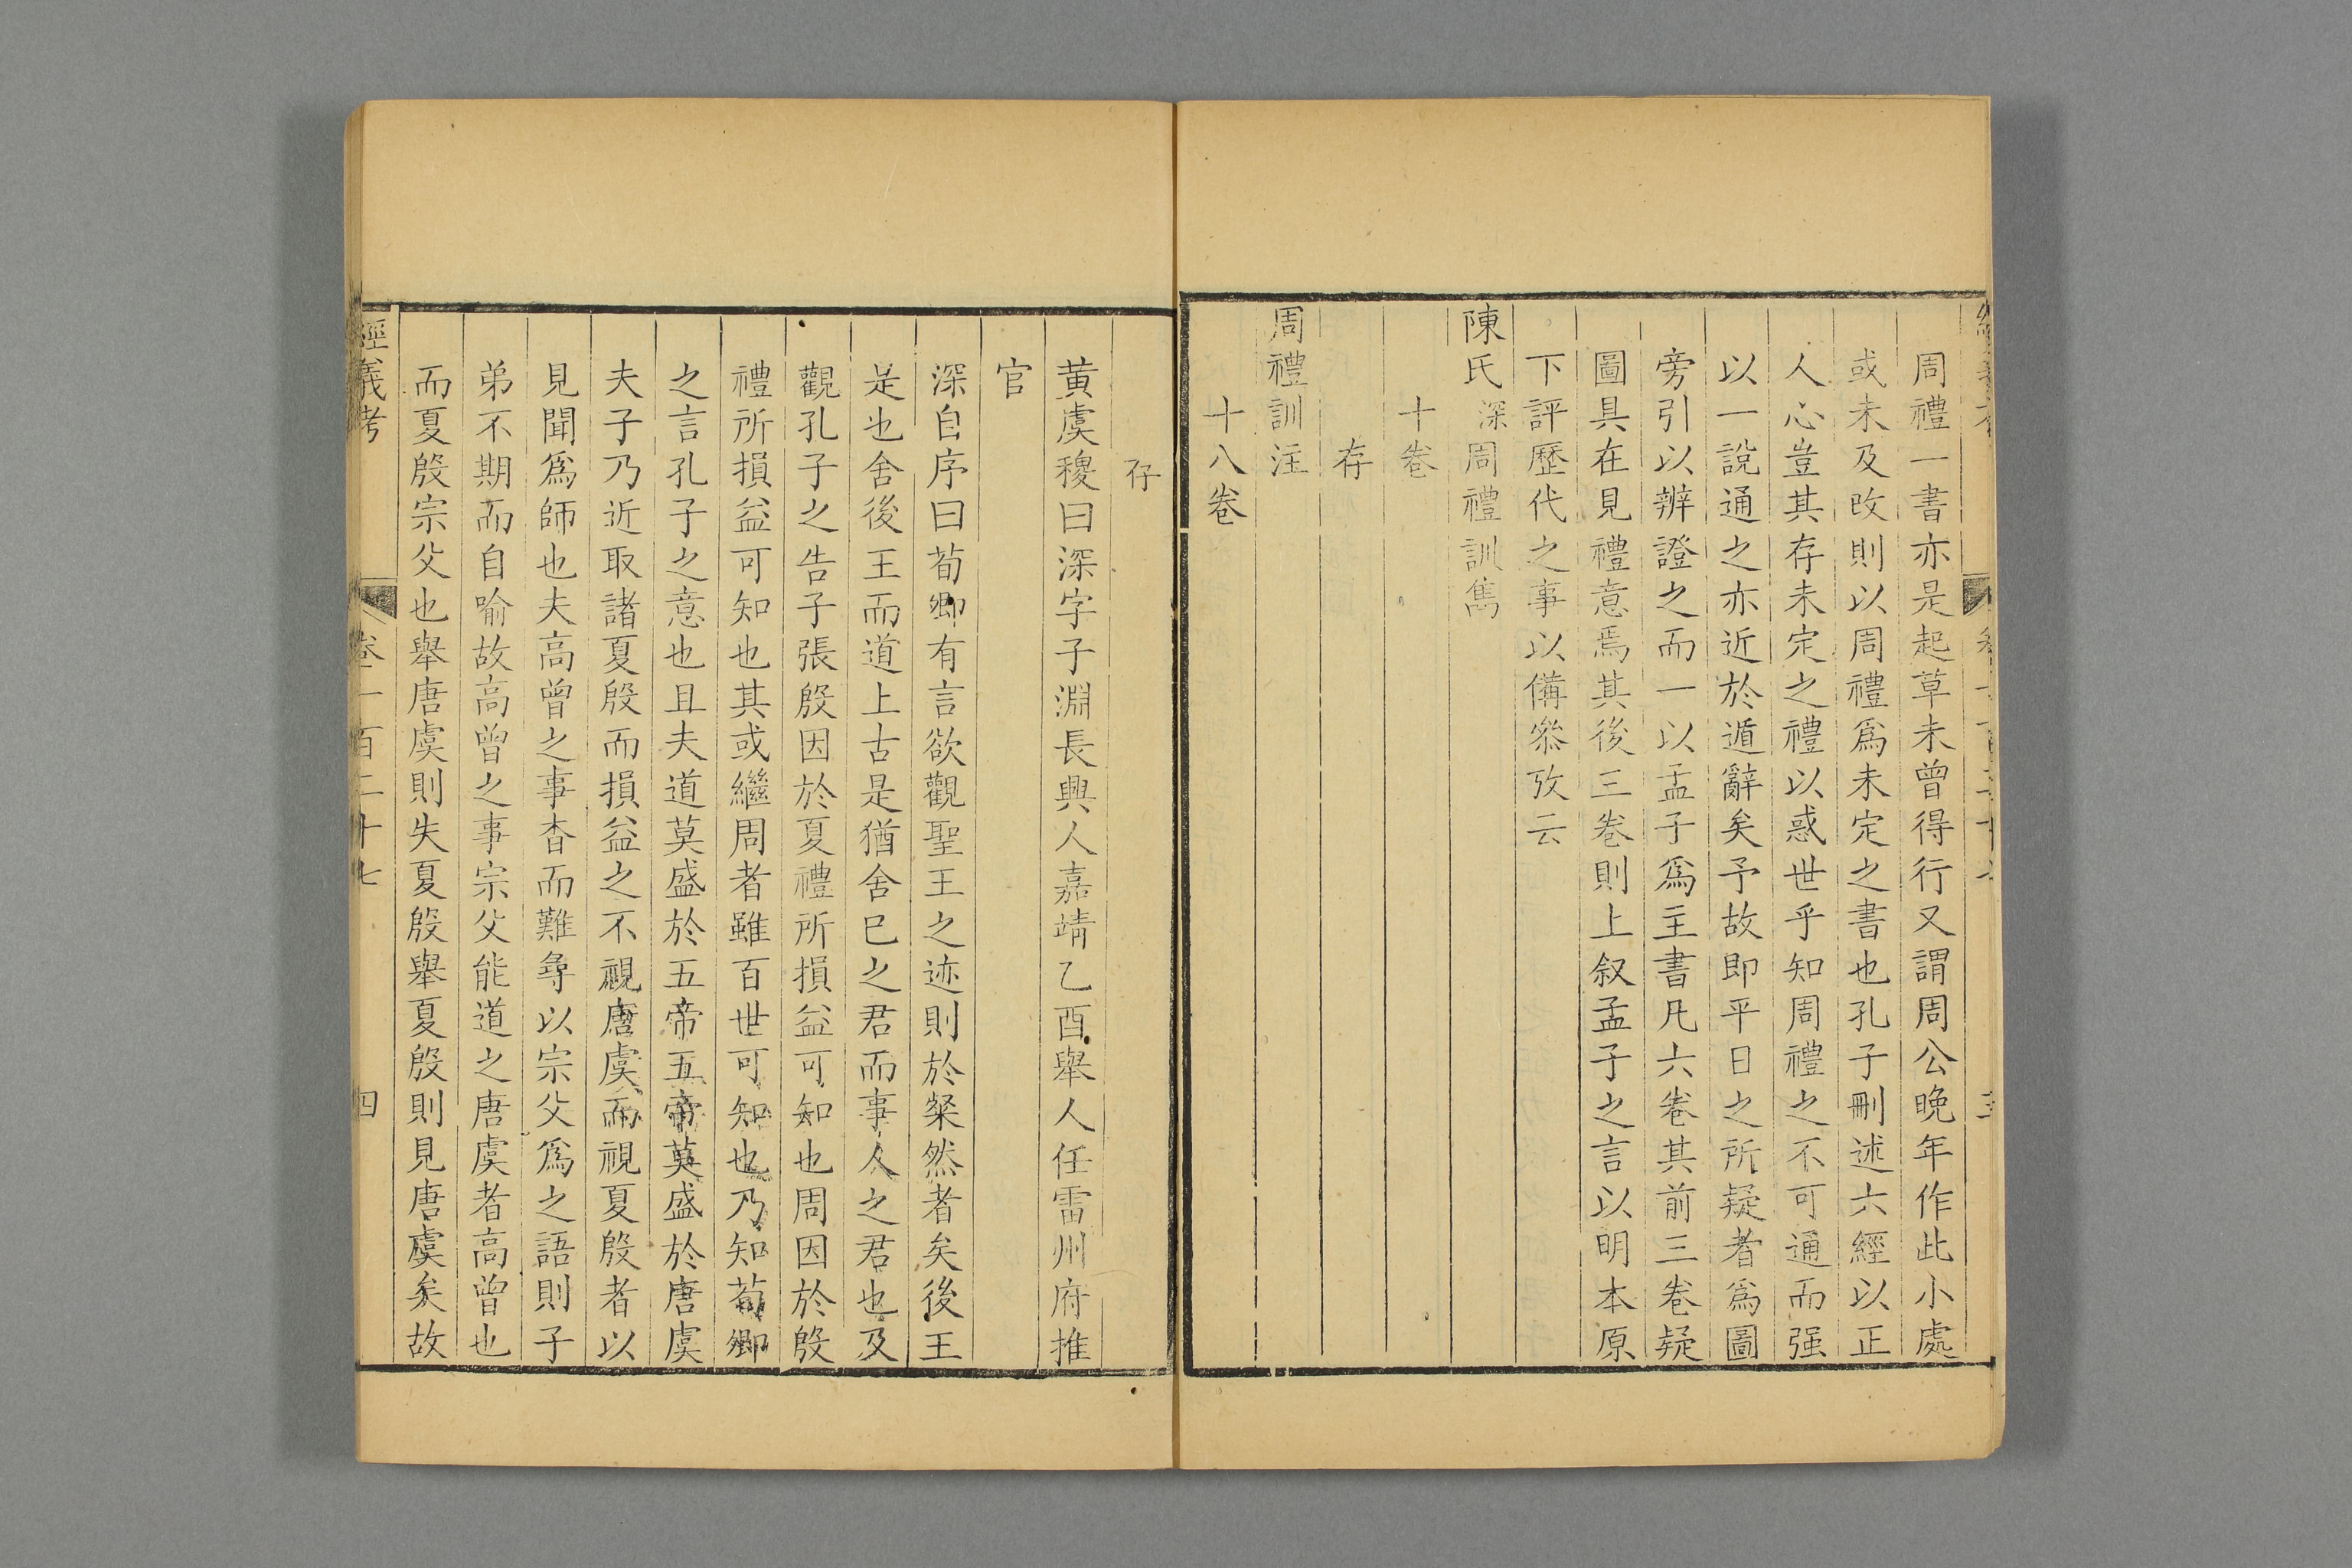 周禮一書亦是起草未曾得行又謂周公晚年作此小處
或未及改則以周禮爲未定之書也孔子刪述六經以正
人心豈其存未定之禮以惑世乎知周禮之不可通而强
以一說通之亦近於遁辭矣予故即平日之所疑者爲圖
旁引以辨證之而一以孟子爲主書凡六卷其前三卷疑
圖具在見禮意焉其後三卷則上叙孟子之言以明本原
下評歷代之事以備叅攷云
陳氏深周禮訓雋
十卷
存
周禮訓注
十八卷
存
黄虞稷曰深字子淵長興人嘉靖乙酉舉人任雷州府推
官
深自序曰荀卿有言欲觀聖王之迹則於粲然者矣後王
是也舍後王而道上古是猶舍已之君而事人之君也及
觀孔子之告子張殷因於夏禮所損益可知也周因於殷
禮所損益可知也其或繼周者雖百世可知也乃知荀卿
之言孔子之意也且夫道莫盛於五帝五帝莫盛於唐虞
夫子乃近取諸夏殷而損益之不覩唐虞而視夏殷者以
見聞爲師也夫高曾之事杳而難尋以宗父爲之語則子
弟不期而自喻故高曾之事宗父能道之唐虞者高曾也
而夏殷宗父也舉唐虞則失夏殷舉夏殷則見唐虞矣故
經義考 卷一百二十七 四